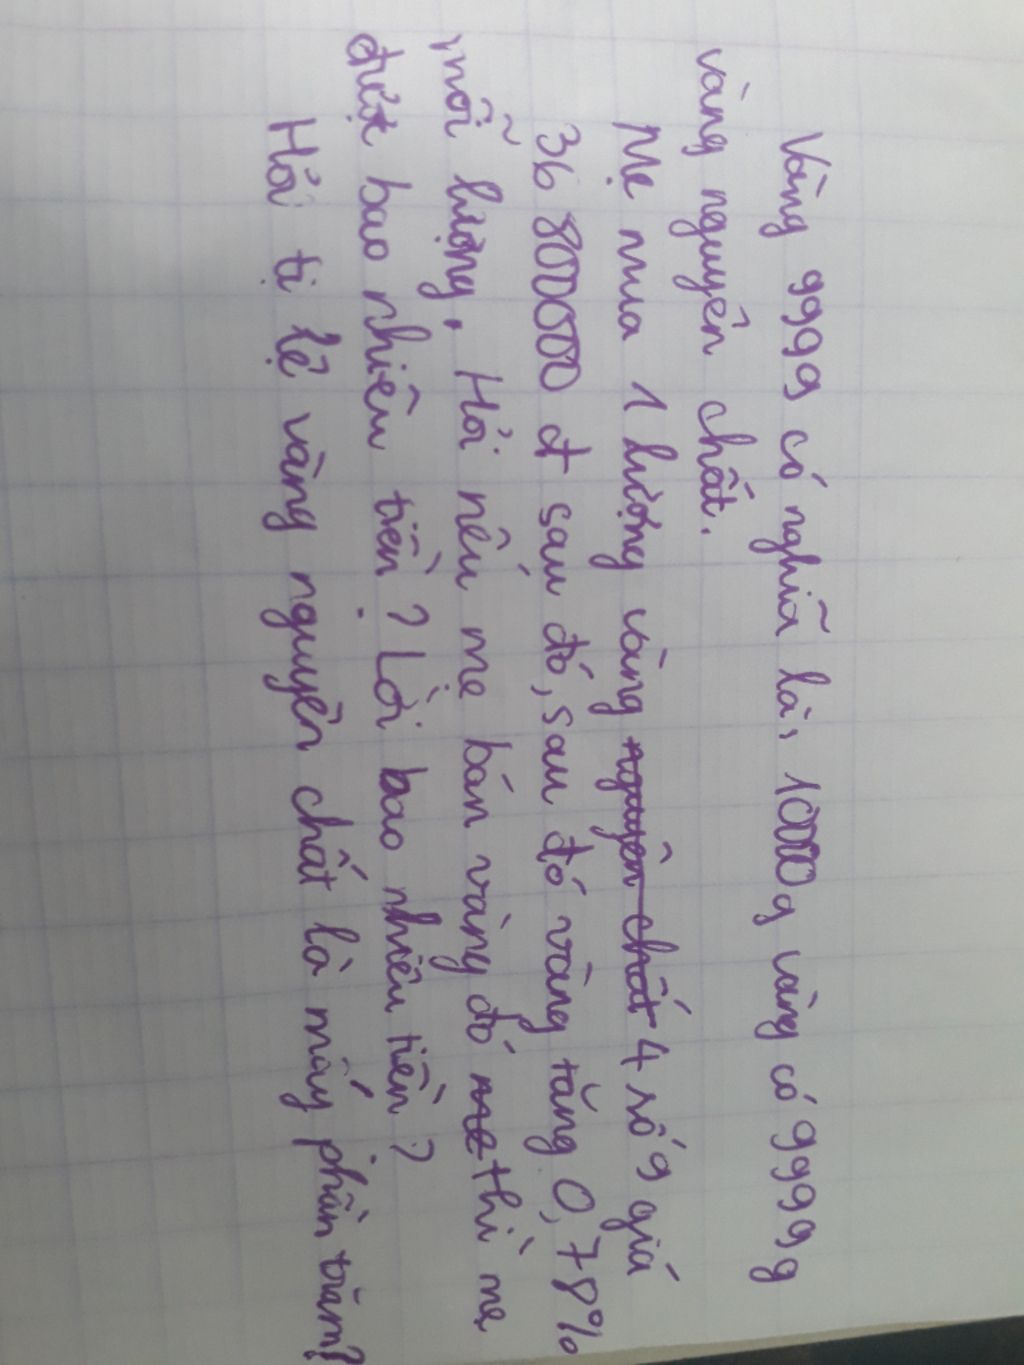 Vàng 9999 có nghĩa là, 10000g vàng có 9999g
vàng nguyên chất.
Mẹ mua 1 lượng vàng nguyên chất 4 số 9 giá
36 800000 đ sau đó, sau đó vàng tăng 0,78%
mỗi lượng. Hỏi nếu mẹ bán vàng đó me thì mẹ
được bao nhiêu tiền? Lời bao nhiêu tiền?
Hỏi tị lệ vàng nguyên chất là mấy phần trăm?